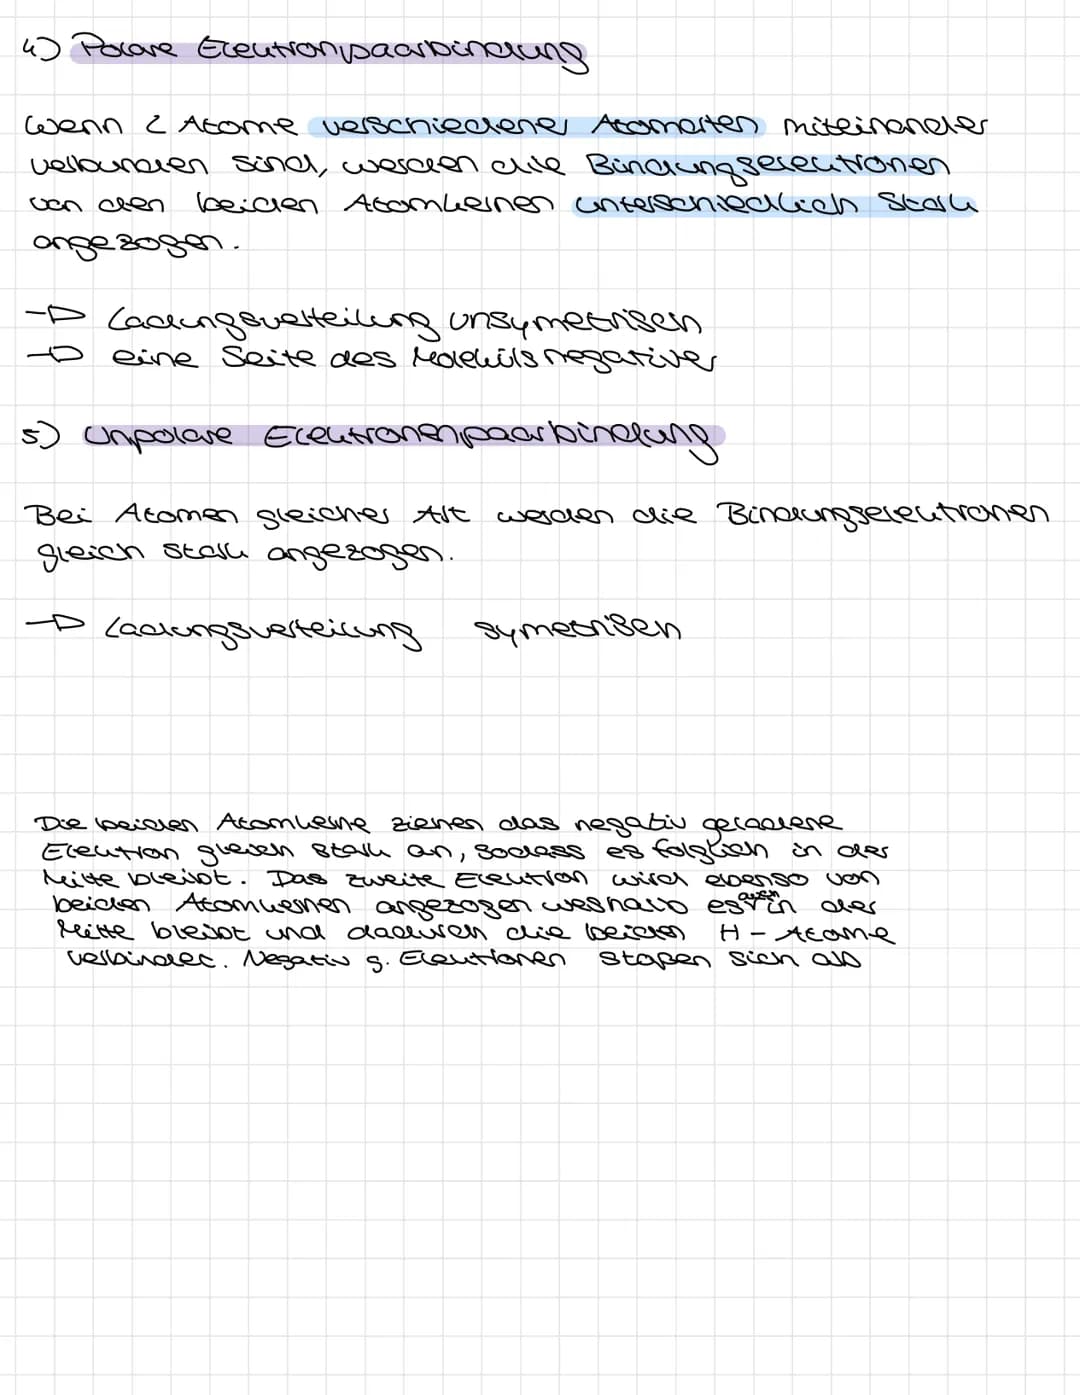 4) Polare Elektronpaarbindung
Wenn 2 Atome verschiedener Atomarten miteinander
verbunden sind, werden die Bindungselektronen
von den beiden Atomkernen unterschiedlich stark
angezogen.
→ Ladungsverteilung unsymetrisch
→ eine Seite des Moleküls negativer
5) Unpolare Elektronenpaarbindung
Bei Atomen gleicher Art werden die Bindungselektronen
gleich stark angezogen.
→ Ladungsverteilung symetrisch
Die beiden Atomkerne ziehen das negativ geladene
Elektron gleich stark an, sodass es folglich in der
Mitte bleibt. Das zweite Elektron wird ebenso von
beiden Atomkernen angezogen weshalb es auch in der
Mitte bleibt und dadurch die beiden H-Atome
verbindet. Negativ g. Elektronen stoßen sich ab